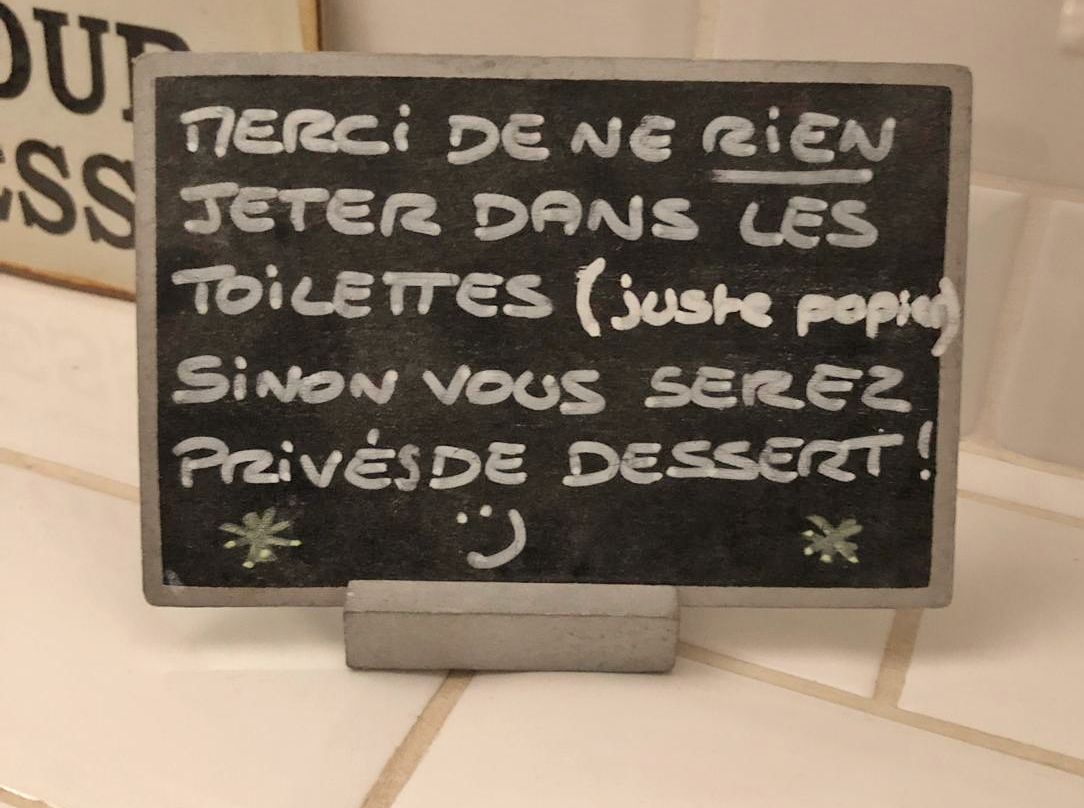 OUR
ESS
MERCi DE NE RiEN
JETER DANS LES
TOiLETTES (juste papier)
SiNON VOUS SEREZ
PRiVÉS DE DESSERT !